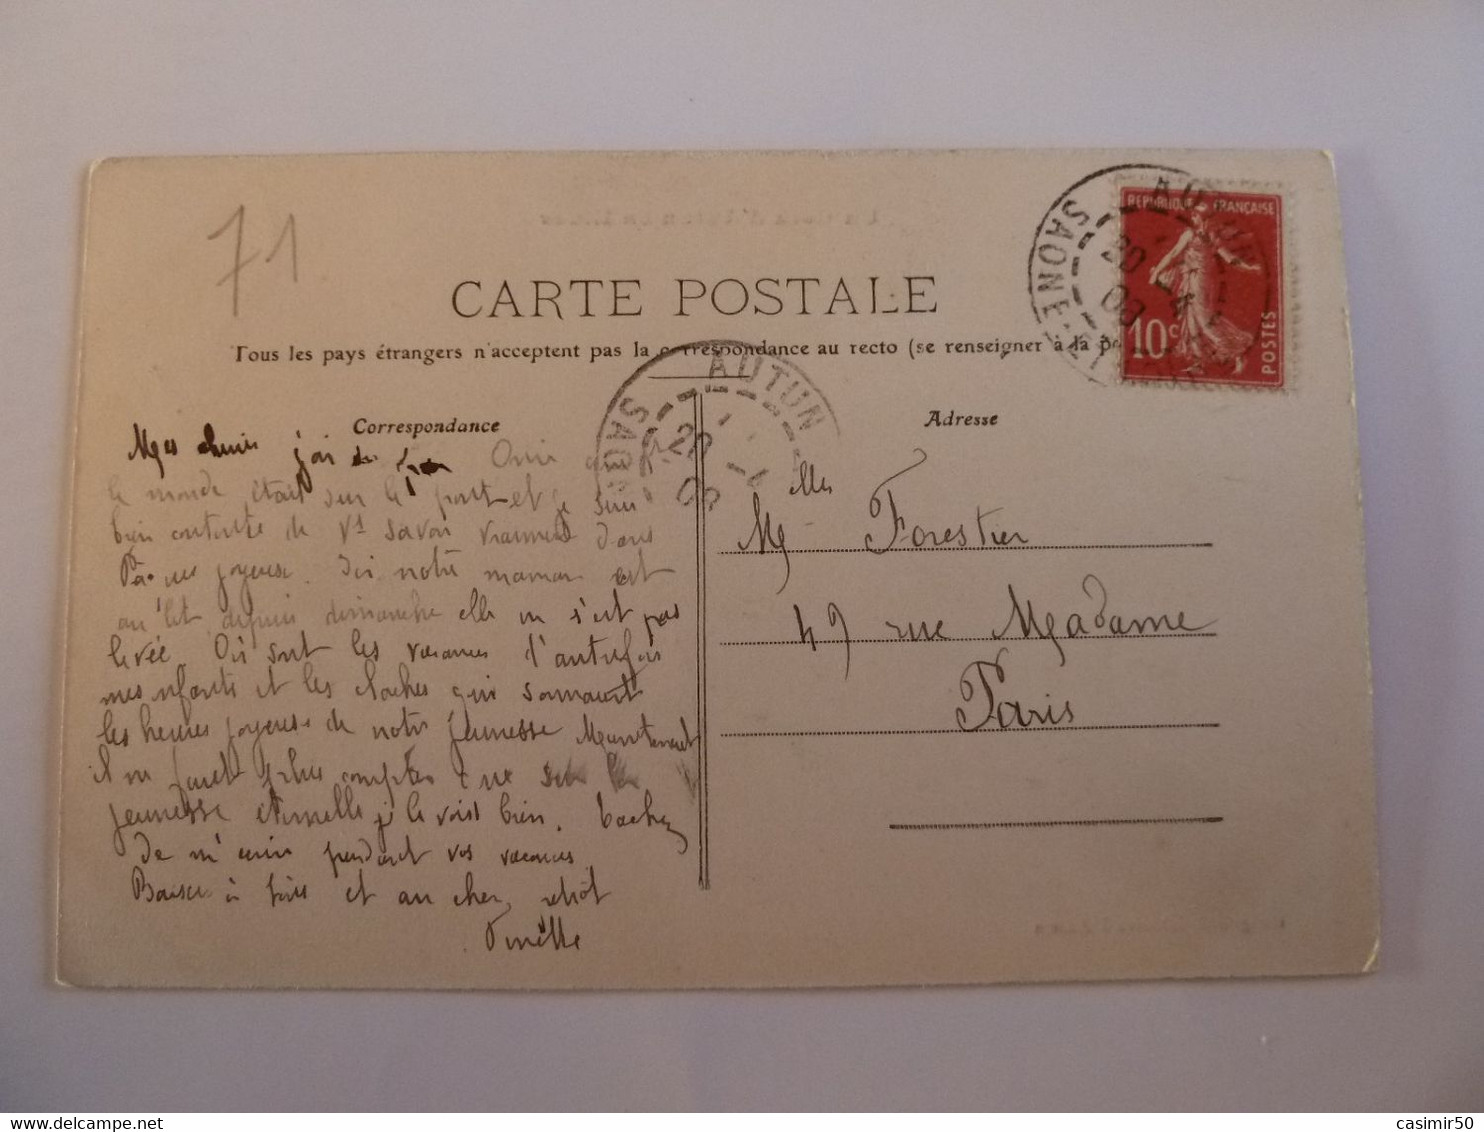 71
CARTE POSTALE
Tous les pays étrangers n'acceptent pas la correspondance au recto (se renseigner à la p
REPUBLIQUE FRANÇAISE
10c
POSTES
AUTUN
SAONE
AUTUN
SAON
Correspondance
Adresse
Mes j'ai
le monde était sur le pont et je suis
bien contente de vs savoir vraiment dans
joyeuse. Ici notre maman est
au lit depuis dimanche elle ne s'est pas
levée. Où sont les vacances d'autrefois
mes enfants et les cloches qui sonnaient
les heures joyeuses de notre jeunesse Maintenant
il ne faut plus compter que sur la
jeunesse éternelle je le vois bien. Tachez
de m'écrire pendant vos vacances
Baisers à tous et au cher
Mlles Forestier
49 rue Madame
Paris
casimir50